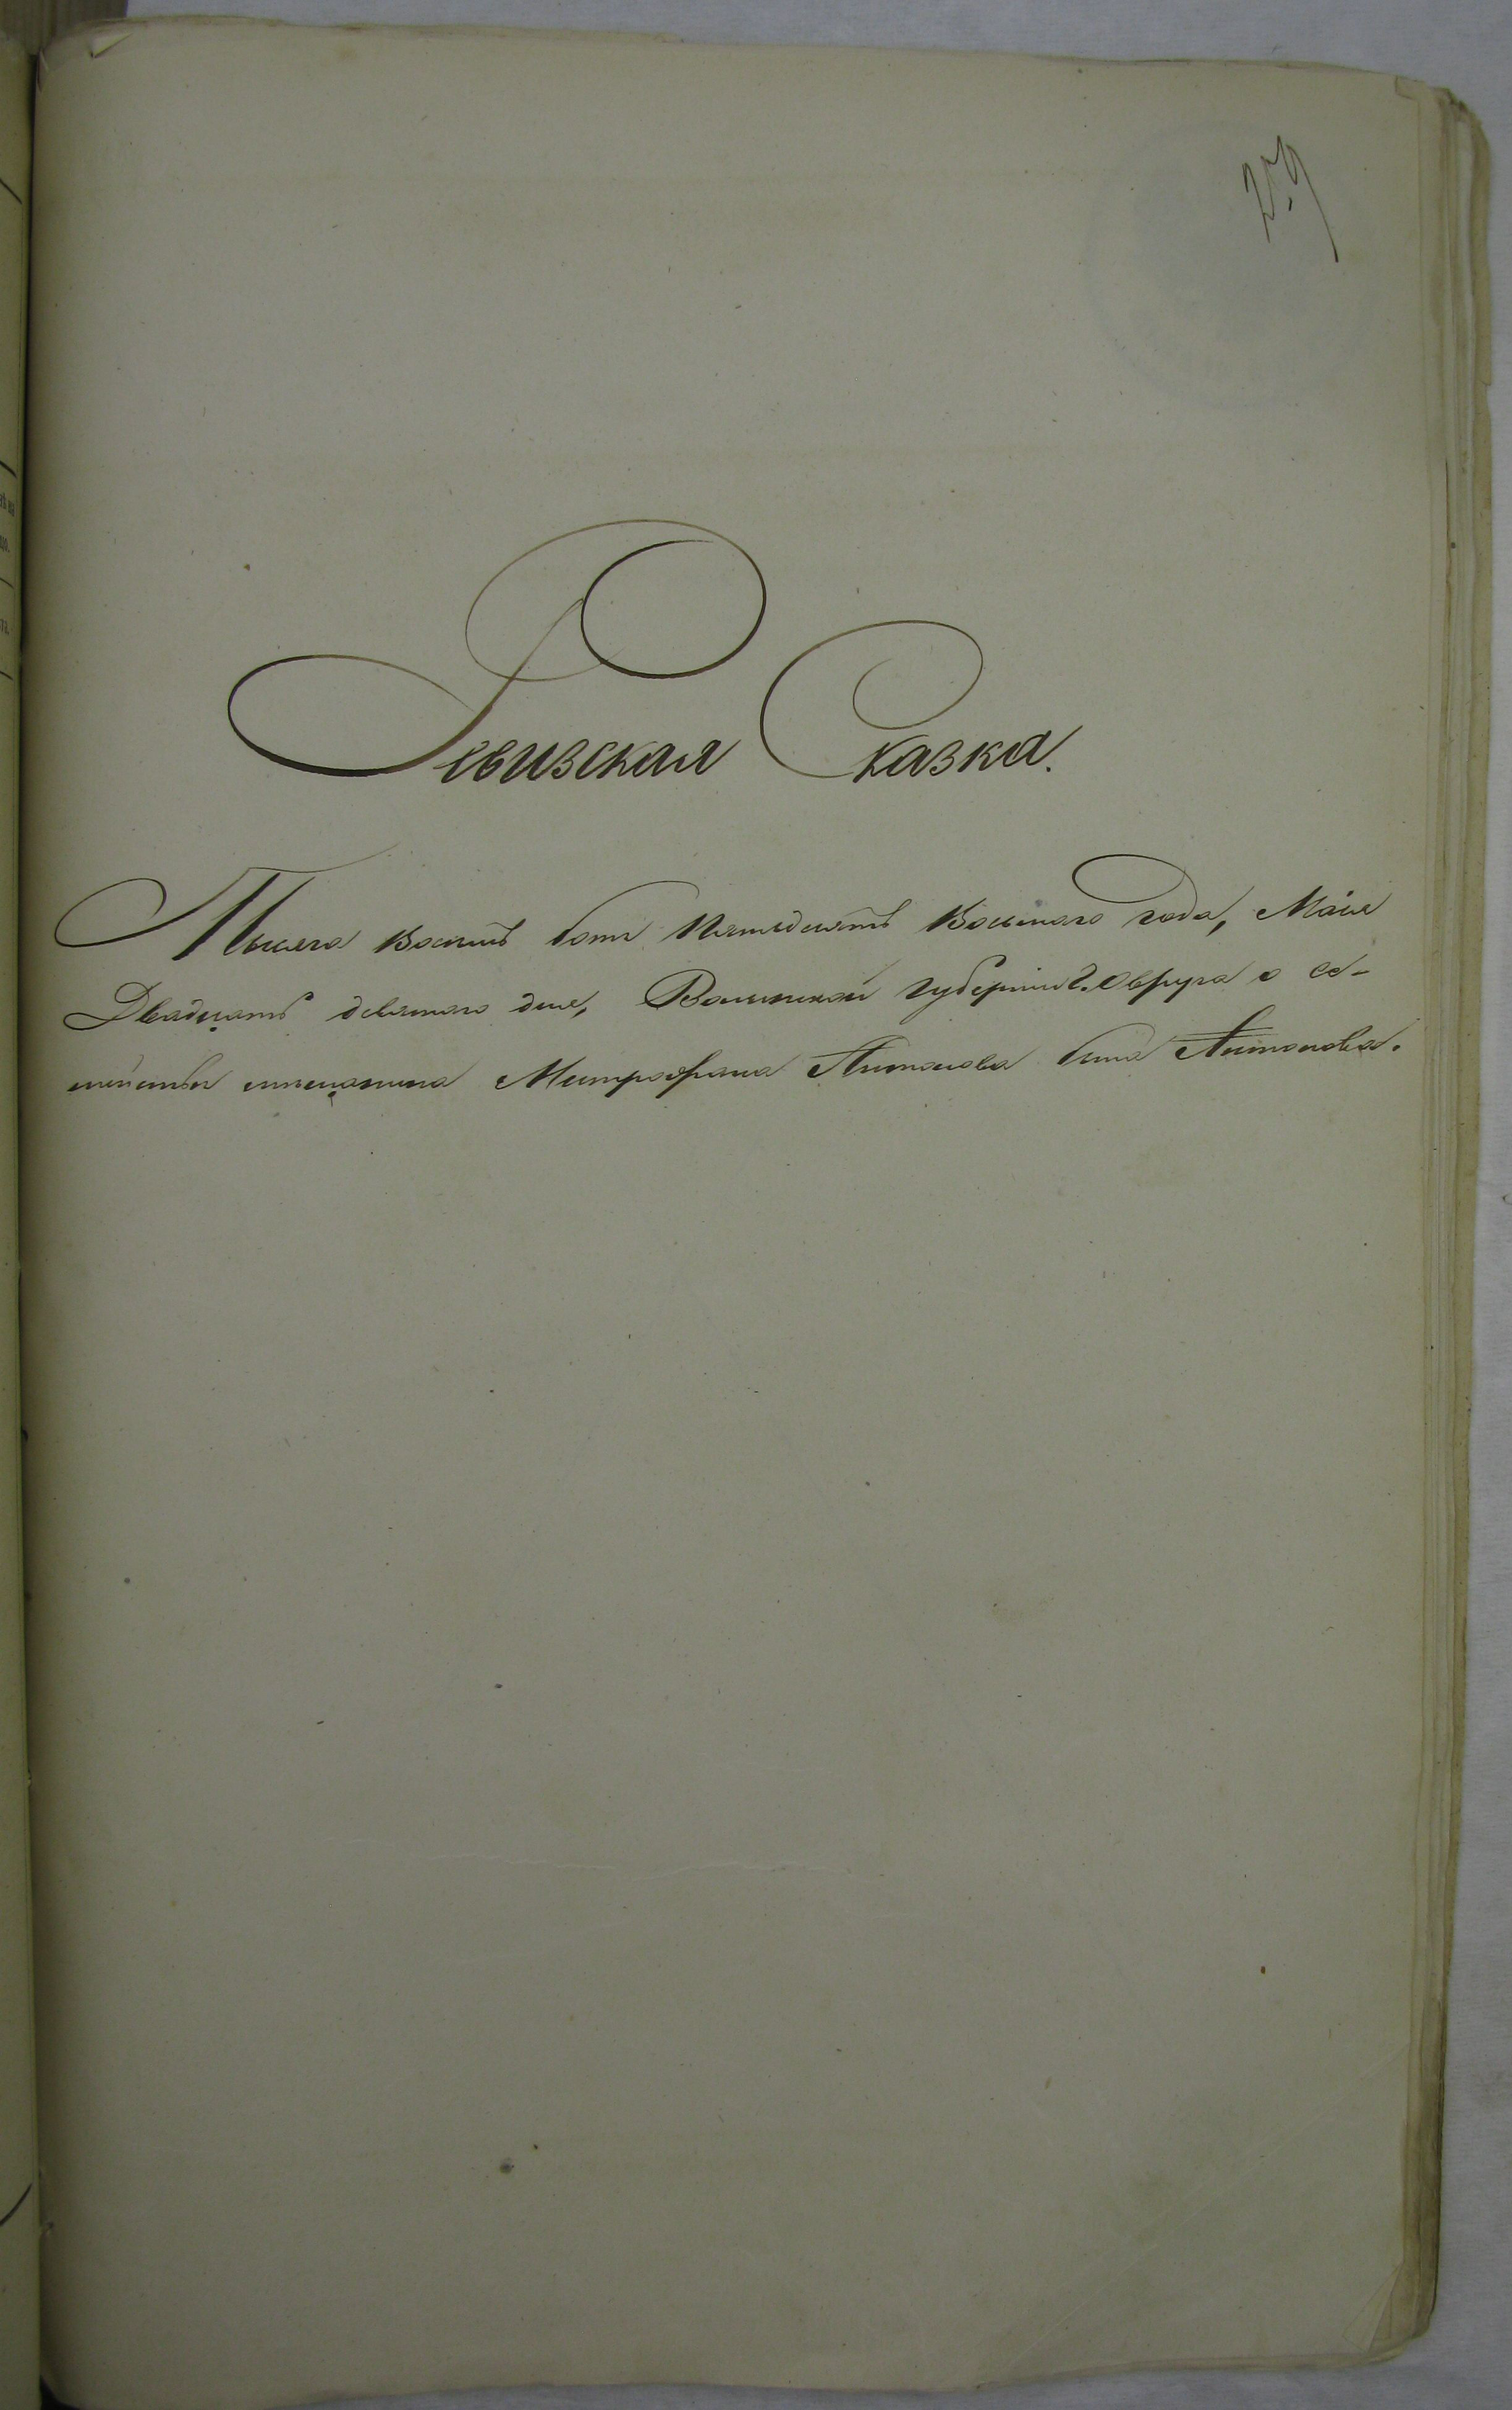 259
Ревизская Сказка.
Тысяча восемь сотъ пятьдесятъ восьмаго года, Маія
Двадцать девятаго дня, Волынской губерніи г. Овруча о се-
мействѣ мѣщанина Митрофана Антонова сына Антонова.